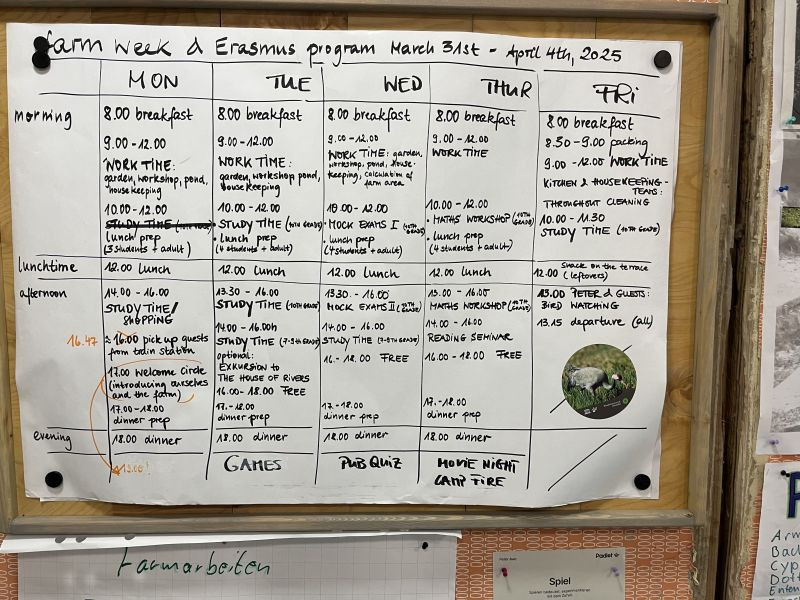 farm week & Erasmus program March 31st - April 4th, 2025
MON TUE WED THUR FRI
morning
8.00 breakfast
9.00 - 12.00
WORK TIME:
garden, workshop, pond,
housekeeping
10.00 - 12.00
STUDY TIME
lunch prep
(3 students + adult)
8.00 breakfast
9.00 - 12.00
WORK TIME:
garden, workshop pond,
housekeeping
10.00 - 12.00
STUDY TIME (10TH GRADE)
• lunch prep
(4 students + adult)
8.00 breakfast
9.00 - 12.00
WORK TIME: garden,
workshop, pond, house-
keeping, calculation of
farm area
10.00 - 12.00
• MOCK EXAMS I (10TH GRADE)
• lunch prep
(4 students + adult)
8.00 breakfast
9.00 - 12.00
WORK TIME
10.00 - 12.00
• MATHS WORKSHOP (10TH GRADE)
• lunch prep
(4 students + adult)
8.00 breakfast
8.30 - 9.00 packing
9.00 - 12.00 WORK TIME
KITCHEN & HOUSEKEEPING-
TEAMS:
THROUGHOUT CLEANING
10.00 - 11.30
STUDY TIME (10TH GRADE)
lunchtime
12.00 lunch
12.00 lunch
12.00 lunch
12.00 lunch
12.00 snack on the terrace
(leftovers)
afternoon
14.00 - 16.00
STUDY TIME/
SHOPPING
16.47
16.00 pick up guests
from train station
17.00 welcome circle
(introducing ourselves
and the farm)
17.00 - 18.00
dinner prep
13.30 - 16.00
STUDY TIME (10TH GRADE)
14.00 - 16.00h
STUDY TIME (7-9TH GRADE)
optional:
EXKURSION TO
THE HOUSE OF RIVERS
16.00 - 18.00 FREE
17. - 18.00
dinner prep
13.30 - 16.00
MOCK EXAMS II (10TH GRADE)
14.00 - 16.00
STUDY TIME (7-9TH GRADE)
16. - 18.00 FREE
17. - 18.00
dinner prep
13.00 - 16.00
MATHS WORKSHOP (10TH GRADE)
14.00 - 16.00
READING SEMINAR
16.00 - 18.00 FREE
17. - 18.00
dinner prep
13.00 PETER & GUESTS:
BIRD WATCHING
13.15 departure (all)
evening
18.00 dinner
19.00!
18.00 dinner
GAMES
18.00 dinner
PUB QUIZ
18.00 dinner
MOVIE NIGHT
CAMP FIRE
Farmarbeiten
Padlet
Spiel